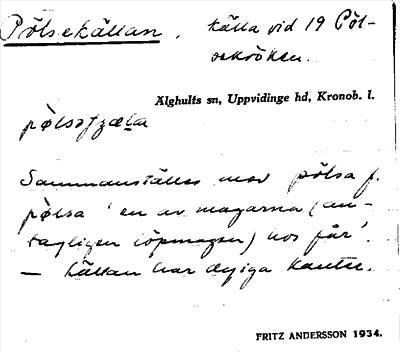 Pölsekällan, källa vid 19 Pöl-
sekröken.
Älghults sn, Uppvidinge hd, Kronob. l.
pølsəʃzæla
Sammanställes med pölsa f.
pølsa 'en av magarna (an-
tagligen löpmagen) hos får'.
— källan har dyiga kanter.
FRITZ ANDERSSON 1934.